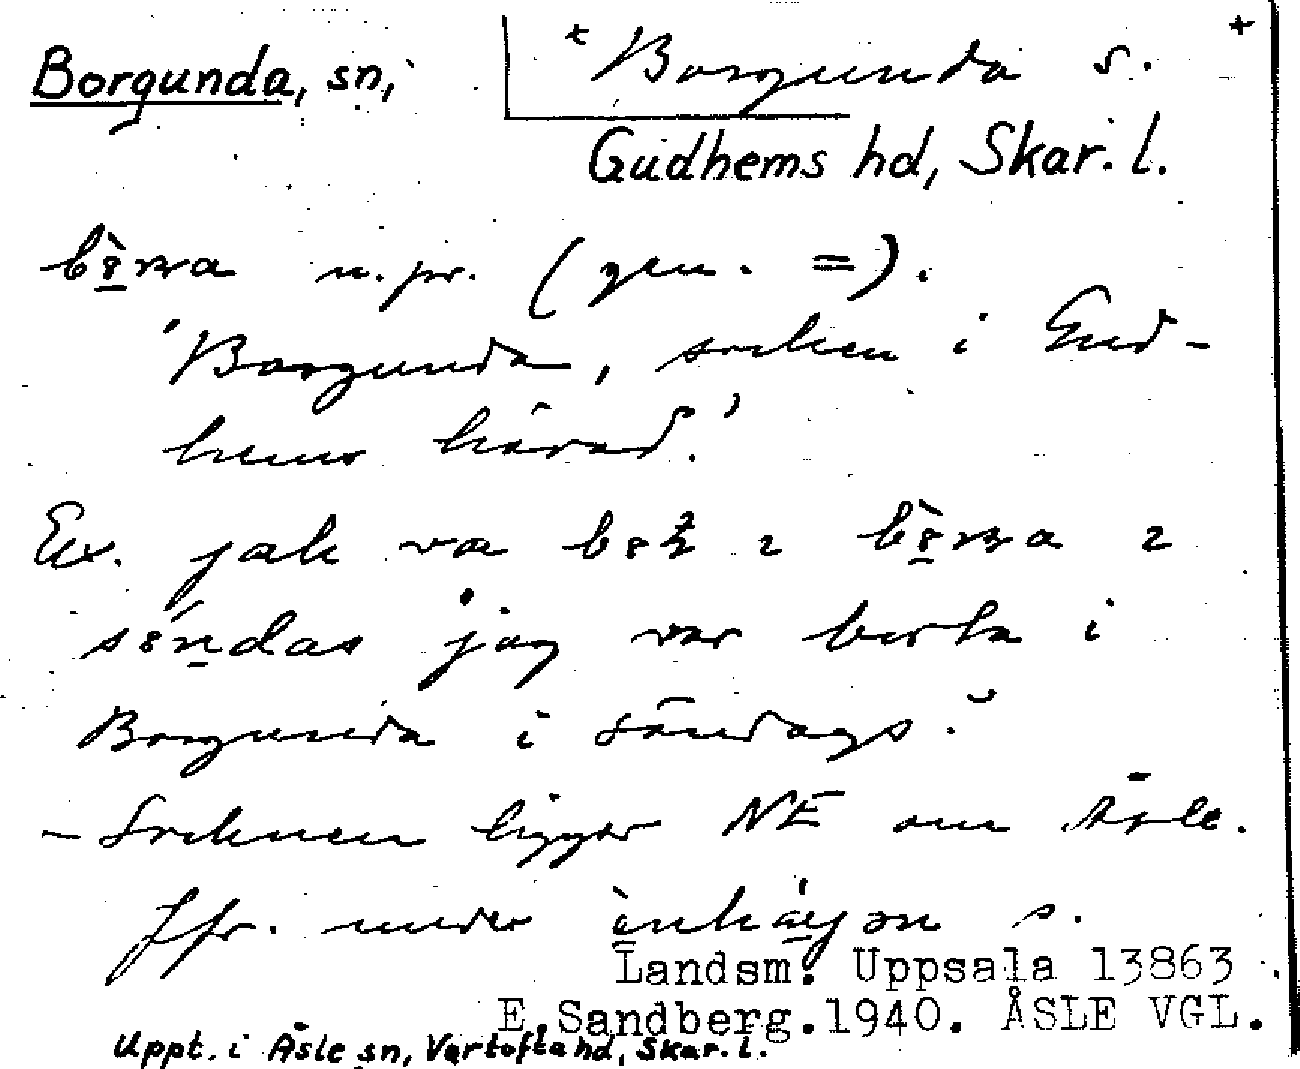 Borgunda, sn, Borgunda s.
Gudhems hd, Skar. l.
n. pr. (gen. =).
'Borgunda, socken i Gud-
hems härad.'
Ex. jak va i
jag var borta i
Borgunda i söndags.
– Socknen ligger NE om Åsle.
Jfr. under s.
Landsm. Uppsala 13863
E.Sandberg.1940. ÅSLE VGL.
Uppt. i Åsle sn, Vartofta hd, Skar. l.